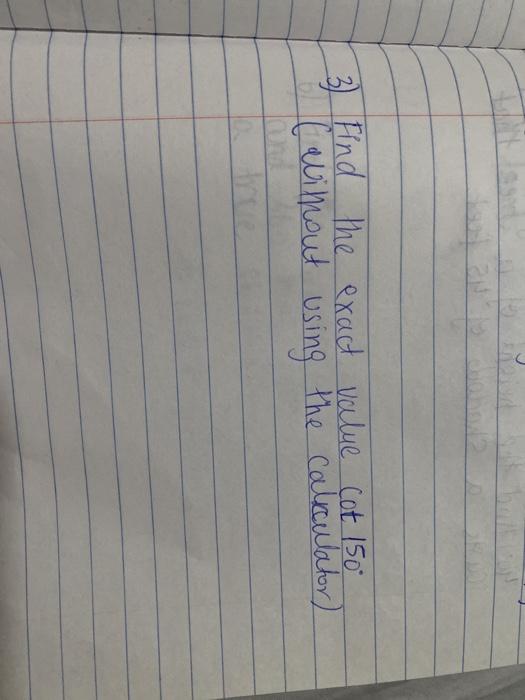 3) Find the exact value cot 150°
(without using the calculator)